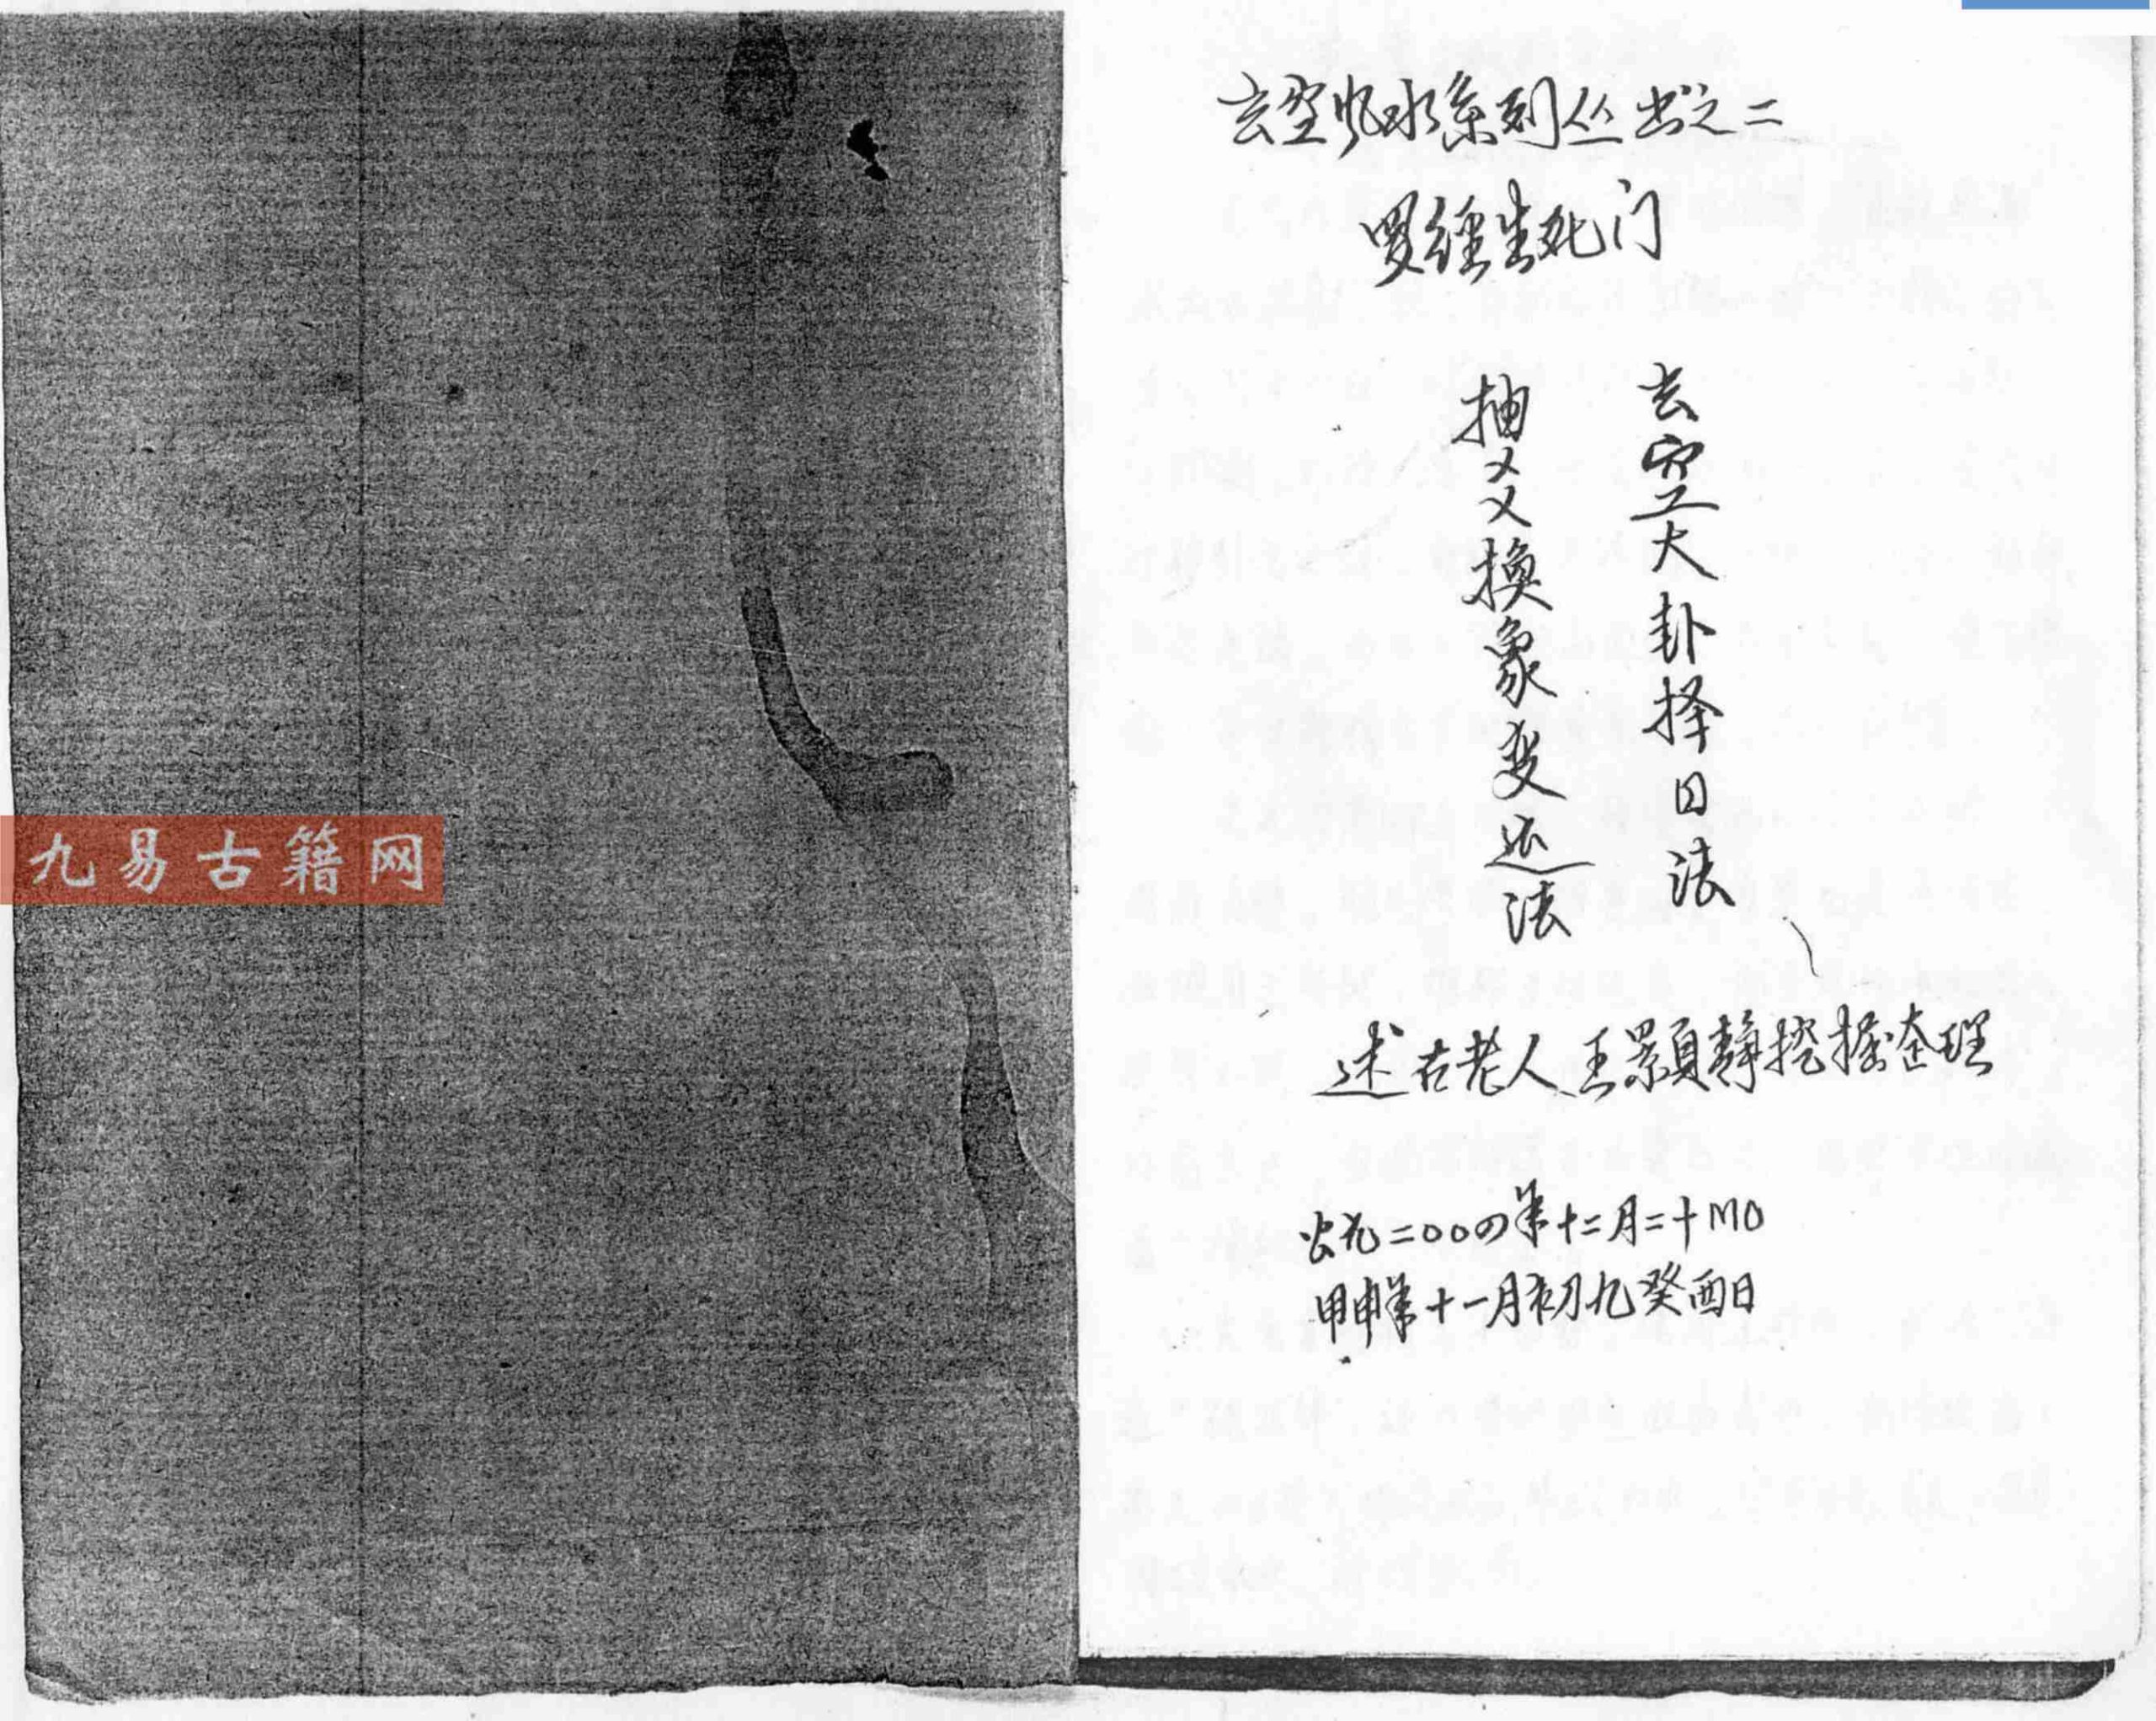 玄空风水系列丛书之二
罗经生死门
玄空大卦择日法
抽爻换象变运法
述古老人王景頁静挖掘整理
公元二00四年十二月二十日
甲申年十一月初九癸酉日
九易古籍网